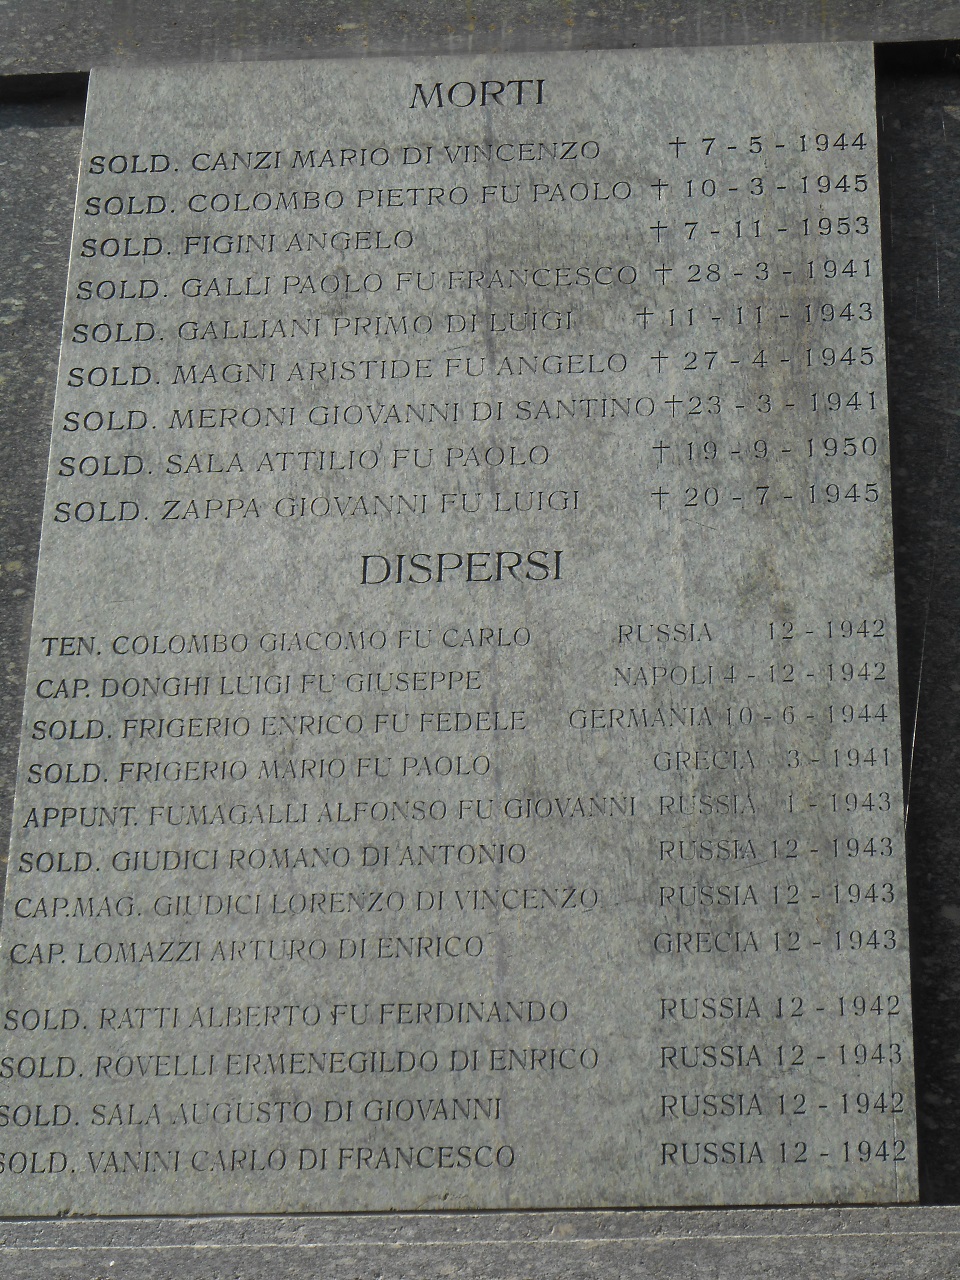 MORTI
SOLD. CANZI MARIO DI VINCENZO † 7 - 5 - 1944
SOLD. COLOMBO PIETRO FU PAOLO † 10 - 3 - 1945
SOLD. FIGINI ANGELO † 7 - 11 - 1953
SOLD. GALLI PAOLO FU FRANCESCO † 28 - 3 - 1941
SOLD. GALLIANI PRIMO DI LUIGI † 11 - 11 - 1943
SOLD. MAGNI ARISTIDE FU ANGELO † 27 - 4 - 1945
SOLD. MERONI GIOVANNI DI SANTINO † 23 - 3 - 1941
SOLD. SALA ATTILIO FU PAOLO † 19 - 9 - 1950
SOLD. ZAPPA GIOVANNI FU LUIGI † 20 - 7 - 1945
DISPERSI
TEN. COLOMBO GIACOMO FU CARLO RUSSIA 12 - 1942
CAP. DONGHI LUIGI FU GIUSEPPE NAPOLI 4 - 12 - 1942
SOLD. FRIGERIO ENRICO FU FEDELE GERMANIA 10 - 6 - 1944
SOLD. FRIGERIO MARIO FU PAOLO GRECIA 3 - 1941
APPUNT. FUMAGALLI ALFONSO FU GIOVANNI RUSSIA 1 - 1943
SOLD. GIUDICI ROMANO DI ANTONIO RUSSIA 12 - 1943
CAP. MAG. GIUDICI LORENZO DI VINCENZO RUSSIA 12 - 1943
CAP. LOMAZZI ARTURO DI ENRICO GRECIA 12 - 1943
SOLD. RATTI ALBERTO FU FERDINANDO RUSSIA 12 - 1942
SOLD. ROVELLI ERMENEGILDO DI ENRICO RUSSIA 12 - 1943
SOLD. SALA AUGUSTO DI GIOVANNI RUSSIA 12 - 1942
SOLD. VANINI CARLO DI FRANCESCO RUSSIA 12 - 1942